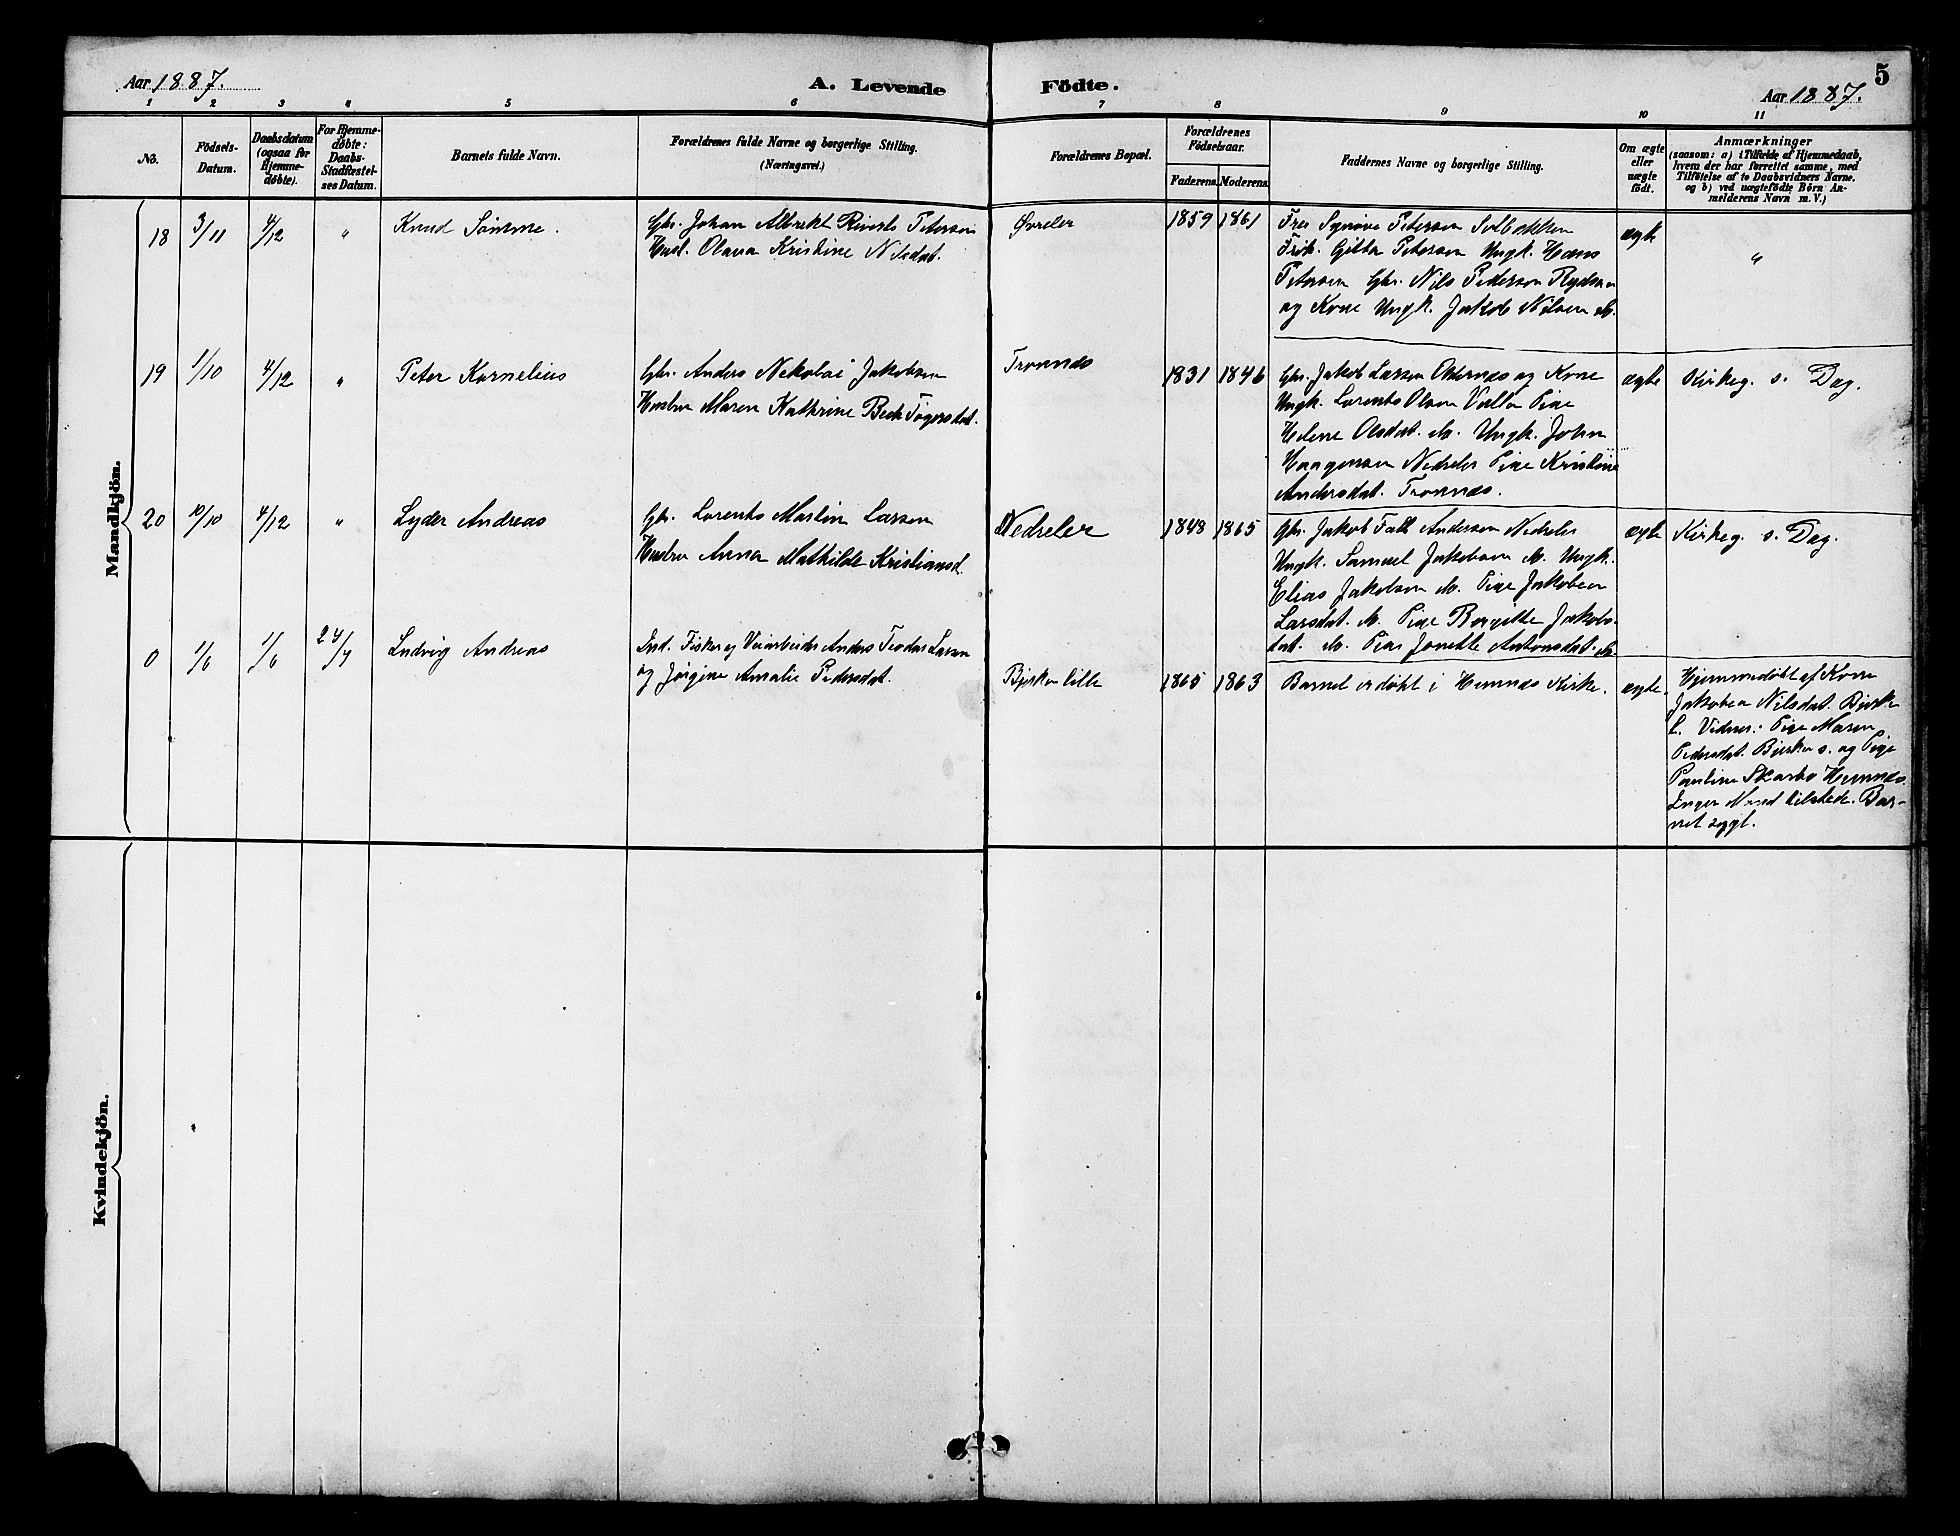 Aar 1887. A. Levende Födte. Aar 1887. 5
1 2 3 4 5 6 7 8 9 10 11
No.
Födsels-
Datum.
Daabsdatum
(ogsaa for
Hjemme-
döbte).
For Hjemme-
döbte:
Daabs-
Stadfæstel-
ses Datum.
Barnets fulde Navn.
Forældrenes fulde Navne og borgerlige Stilling.
(Næringsvei.)
Forældrenes Bopæl.
Forældrenes
Födselsaar.
Faderens. Moderens.
Faddernes Navne og borgerlige Stilling.
Om ægte
eller
uægte
födt.
Anmærkninger
(saasom: a) i Tilfælde af Hjemmedaab,
hvem der har forrettet samme, med
Tilföielse af to Daabsvidners Navne.
og b) ved uægtefödte Börn An-
melderens Navn m. V.)
Mandkjön.
18 3/11 4/12 "
Knud Sømme.
Gbr. Johan Albrekt Petersen
Hust. Olava Kristine Nilsdat.
Øvreler
1859 1861
Frue Synøve Petersen
Frøk. Gitta Petersen Ungk. Hans
Petersen Gbr. Nils Pederson
og Kone Ungk. Jakob Nilsen
ægte
"
19 1/10 4/12 "
Peter Kornelius
Gbr. Anders Nekolai Jakobsen
Hustru Maren Kathrine Beck
Tronnes
1831 1846
Gbr. Jakob Larsen og Kone
Ungk. Lorents Olsen Valla Pige
Helene Olsdat. Ungk. John
Haagensen Nedreler Pige Kristine
Andersdat. Tronnes.
ægte
Kirkeg. s. Dag.
20 10/10 4/12 "
Lyder Andreas
Gbr. Lorents Martin Larsen
Hustru Anna Mathilde Kristiansd.
Nedreler
1848 1865
Gbr. Jakob Falk Andersen Nedreler
Ungk. Samuel Jakobsen Ungk.
Elias Jakobsen Pige Jakobea
Larsdat. Pige Bergitte Jakobs-
dat. Pige Antonsdat.
ægte
Kirkeg. s. Dag.
0 1/6 1/6 24/7
Ludvig Andreas
Ind. Fisker og Veiarbeider Anders Teodor Larsen
og Jørgine Amalie Pedersdat.
Bjerken lille
1865 1863
Barnet er døbt i Hemnes Kirke.
ægte.
Hjemmedøbt af Kone
Jakobea Nilsdat.
L. Vidner: Pige Maren
Pedersdat. og Pige
Pauline Hemnes.
Ingen Mand tilstede. Bar-
net sygt.
Kvindekjön.